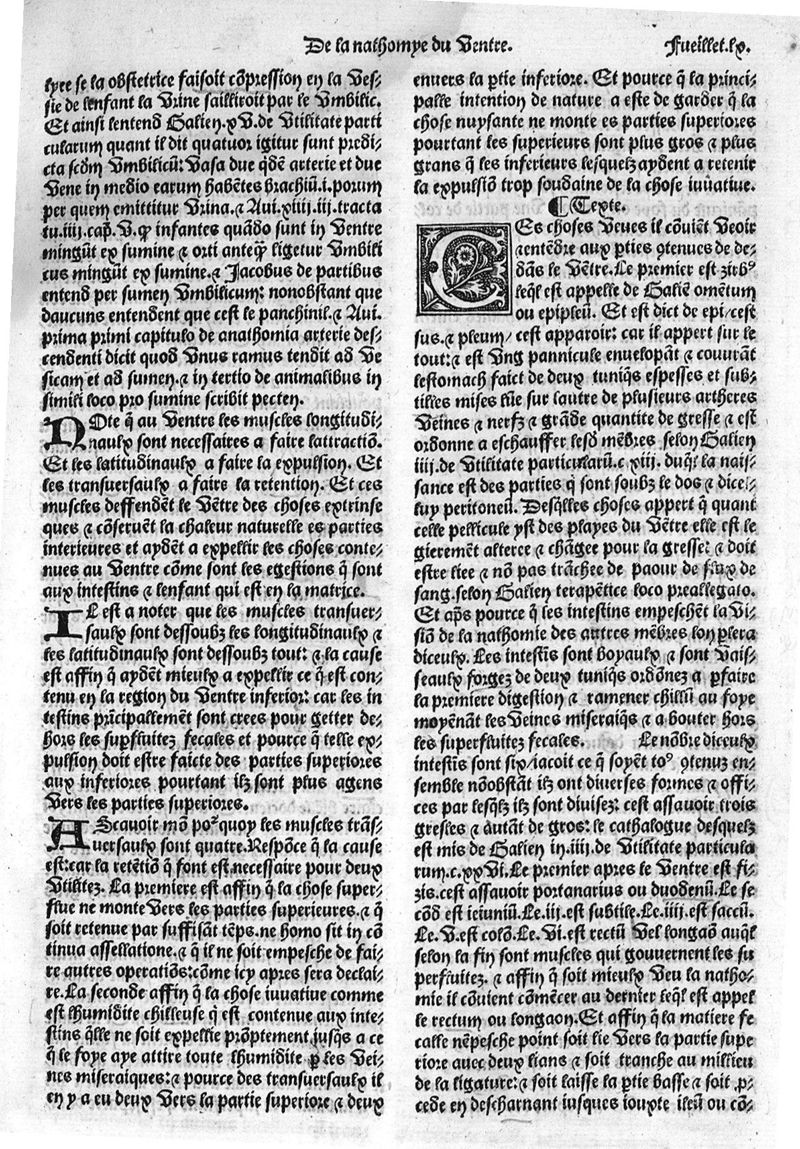 De la nathomye du Ventre.
Fueillet.lx.
lyre se la obstetrice faisoit cõpression en la Ves-
sie de lenfant la Vrine sailliroit par le Vmbilic.
Et ainsi lentend Galien.xV.de Vtilitate parti
cularum quant il dit quatuor igitur sunt predi-
cta scd̃m Vmbilicũ: Vasa due qd̃ẽ arterie et due
Vene in medio earum habẽtes brachiũ.i.porum
per quem emittitur Vrina.⁊ Aui.xiiij.iij.tracta
tu.iiij.cap̃.V.q̃ infantes quãdo sunt in Ventre
mingũt ex sumine ⁊ orti anteq̃ ligetur Vmbili
cus mingũt ex sumine.⁊ Jacobus de partibus
entend per sumen Vmbilicum: nonobstant que
daucuns entendent que cest le panchinil.⁊ Aui.
prima primi capitulo de anathomia arterie des-
cendenti dicit quod Vnus ramus tendit ad Ve
sicam et ad sumen.⁊ in tertio de animalibus in
simili loco pro sumine scribit pecten.
NOte q̃ au Ventre les muscles longitudi-
naulx sont necessaires a faire lattractiõ.
Et les latitudinaulx a faire la expulsion. Et
les transuersaulx a faire la retention. Et ces
muscles deffendẽt le Vẽtre des choses extrinse
ques ⁊ cõseruẽt la chaleur naturelle es parties
interieures et aydẽt a expellir les choses conte-
nues au Ventre cõme sont les egestions q̃ sont
aux intestins ⁊ lenfant qui est en la matrice.
IL est a noter que les muscles transuer-
saulx sont dessoubz les longitudinaulx ⁊
les latitudinaulx sont dessoubz tout: ⁊ la cause
est affin q̃ aydẽt mieulx a expellir ce q̃ est con-
tenu en la region du Ventre inferior: car les in
testins pr̃cipallemẽt sont crees pour getter de-
hors les sup̃fluitez fecales et pource q̃ telle ex-
pulsion doit estre faicte des parties superiores
aux inferiores pourtant ilz sont plus agens
Vers les parties superiores.
AScauoir mõ po² quoy les muscles trãs-
uersaulx sont quatre.Respõce q̃ la cause
est:car la retẽtiõ q̃ font est necessaire pour deux
Vtilitez. La premiere est affin q̃ la chose super-
flue ne monte Vers les parties superieures.⁊ q̃
soit retenue par suffisãt tẽps.ne homo sit in cõ
tinua assellatione.⁊ q̃ il ne soit empesche de fai-
re autres operatiõs:cõme icy apres sera declai-
re.La seconde affin q̃ la chose iuuatiue comme
est lhumidite chilleuse q̃ est contenue aux inte-
stins q̃lle ne soit expellie prõptement iusq̃s a ce
q̃ le foye aye attire toute lhumidite p̱ les Vei-
nes miseraiques:⁊ pource des transuersaulx il
en y a eu deux Vers la partie superiore ⁊ deux
enuers la p̱tie inferiore. Et pource q̃ la princi-
palle intention de nature a este de garder q̃ la
chose nuysante ne monte es parties superiores
pourtant les superieurs sont plus gros ⁊ plus
grans q̃ les inferieurs lesquelz aydent a retenir
la expulsiõ trop soudaine de la chose iuuatiue.
¶Texte.
CEs choses Veues il cõuiẽt Veoir
⁊ entẽdre aux p̱ties ꝯtenues de de-
dãs le Vẽtre.Le premier est zirb⁹
leq̃l est appelle de Galiẽ omẽtum
ou epipleũ. Et est dict de epi/cest
sus.⁊ pleum/ cest apparoir: car il appert sur le
tout:⁊ est Vng pannicule enuelopãt ⁊ couurãt
lestomach faict de deux tuniq̃s espesses et sub-
tilles mises lũe sur lautre de plusieurs artheres
Veines ⁊ nerfz ⁊ grãde quantite de gresse ⁊ est
ordonne a eschauffer lesd̃ mẽbres selon Galien
iiij.de Vtilitate particularũ.c xiij. duq̃l la nais-
sance est des parties q̃ sont soubz le dos ⁊ dicel-
luy peritoneũ. Desq̃lles choses appert q̃ quant
celle pellicule yst des playes du Vẽtre elle est le
gierement alteree ⁊ chãgee pour la gresse: ⁊ doit
estre liee ⁊ nõ pas trãchee de paour de flux de
sang.selon Galien terapẽtice loco preallegato.
Et ap̃s pource q̃ les intestins empeschẽt la Vi-
siõ de la nathomie des autres mẽbres lon p̱lera
diceulx. Les intestĩs sont boyaulx ⁊ sont Vais-
seaulx forgez de deux tuniq̃s ordõnez a p̱faire
la premiere digestion ⁊ ramener chillũ au foye
moyẽnãt les Veines miseraiq̃s ⁊ a bouter hors
les superfluitez fecales. Le nõbre diceulx
intestĩs sont six/iacoit ce q̃ soyẽt to⁹ ꝯtenuz en-
semble nõobstãt ilz ont diuerses formes ⁊ offi-
ces par lesq̃lz ilz sont diuisez: cest assauoir trois
gresles ⁊ autãt de gros: le cathalogue desquelz
est mis de Galien in.iiij.de Vtilitate particula
rum.c.xxVi.Le premier apres le Ventre est fi-
zis.cest assauoir portanarius ou duodenũ.Le se
cõd est ieiuniũ.Le.iij.est subtile.Le.iiij.est saccũ.
Le.V.est colõ.Le.Vi.est rectũ Vel longaõ auq̃l
selon la fin sont muscles qui gouuernent les su
perfluitez. ⁊ affin q̃ soit mieulx Veu la natho-
mie il cõuient cõmẽcer au dernier leq̃l est appel
le rectum ou longaon.Et affin q̃ la matiere fe
calle nẽpesche point soit lie Vers la partie supe
riore auec deux lians ⁊ soit tranche au millieu
de la ligature:⁊ soit laisse la p̱tie basse ⁊ soit ꝓ-
cede en descharnant iusques iouxte ileũ ou cõ-